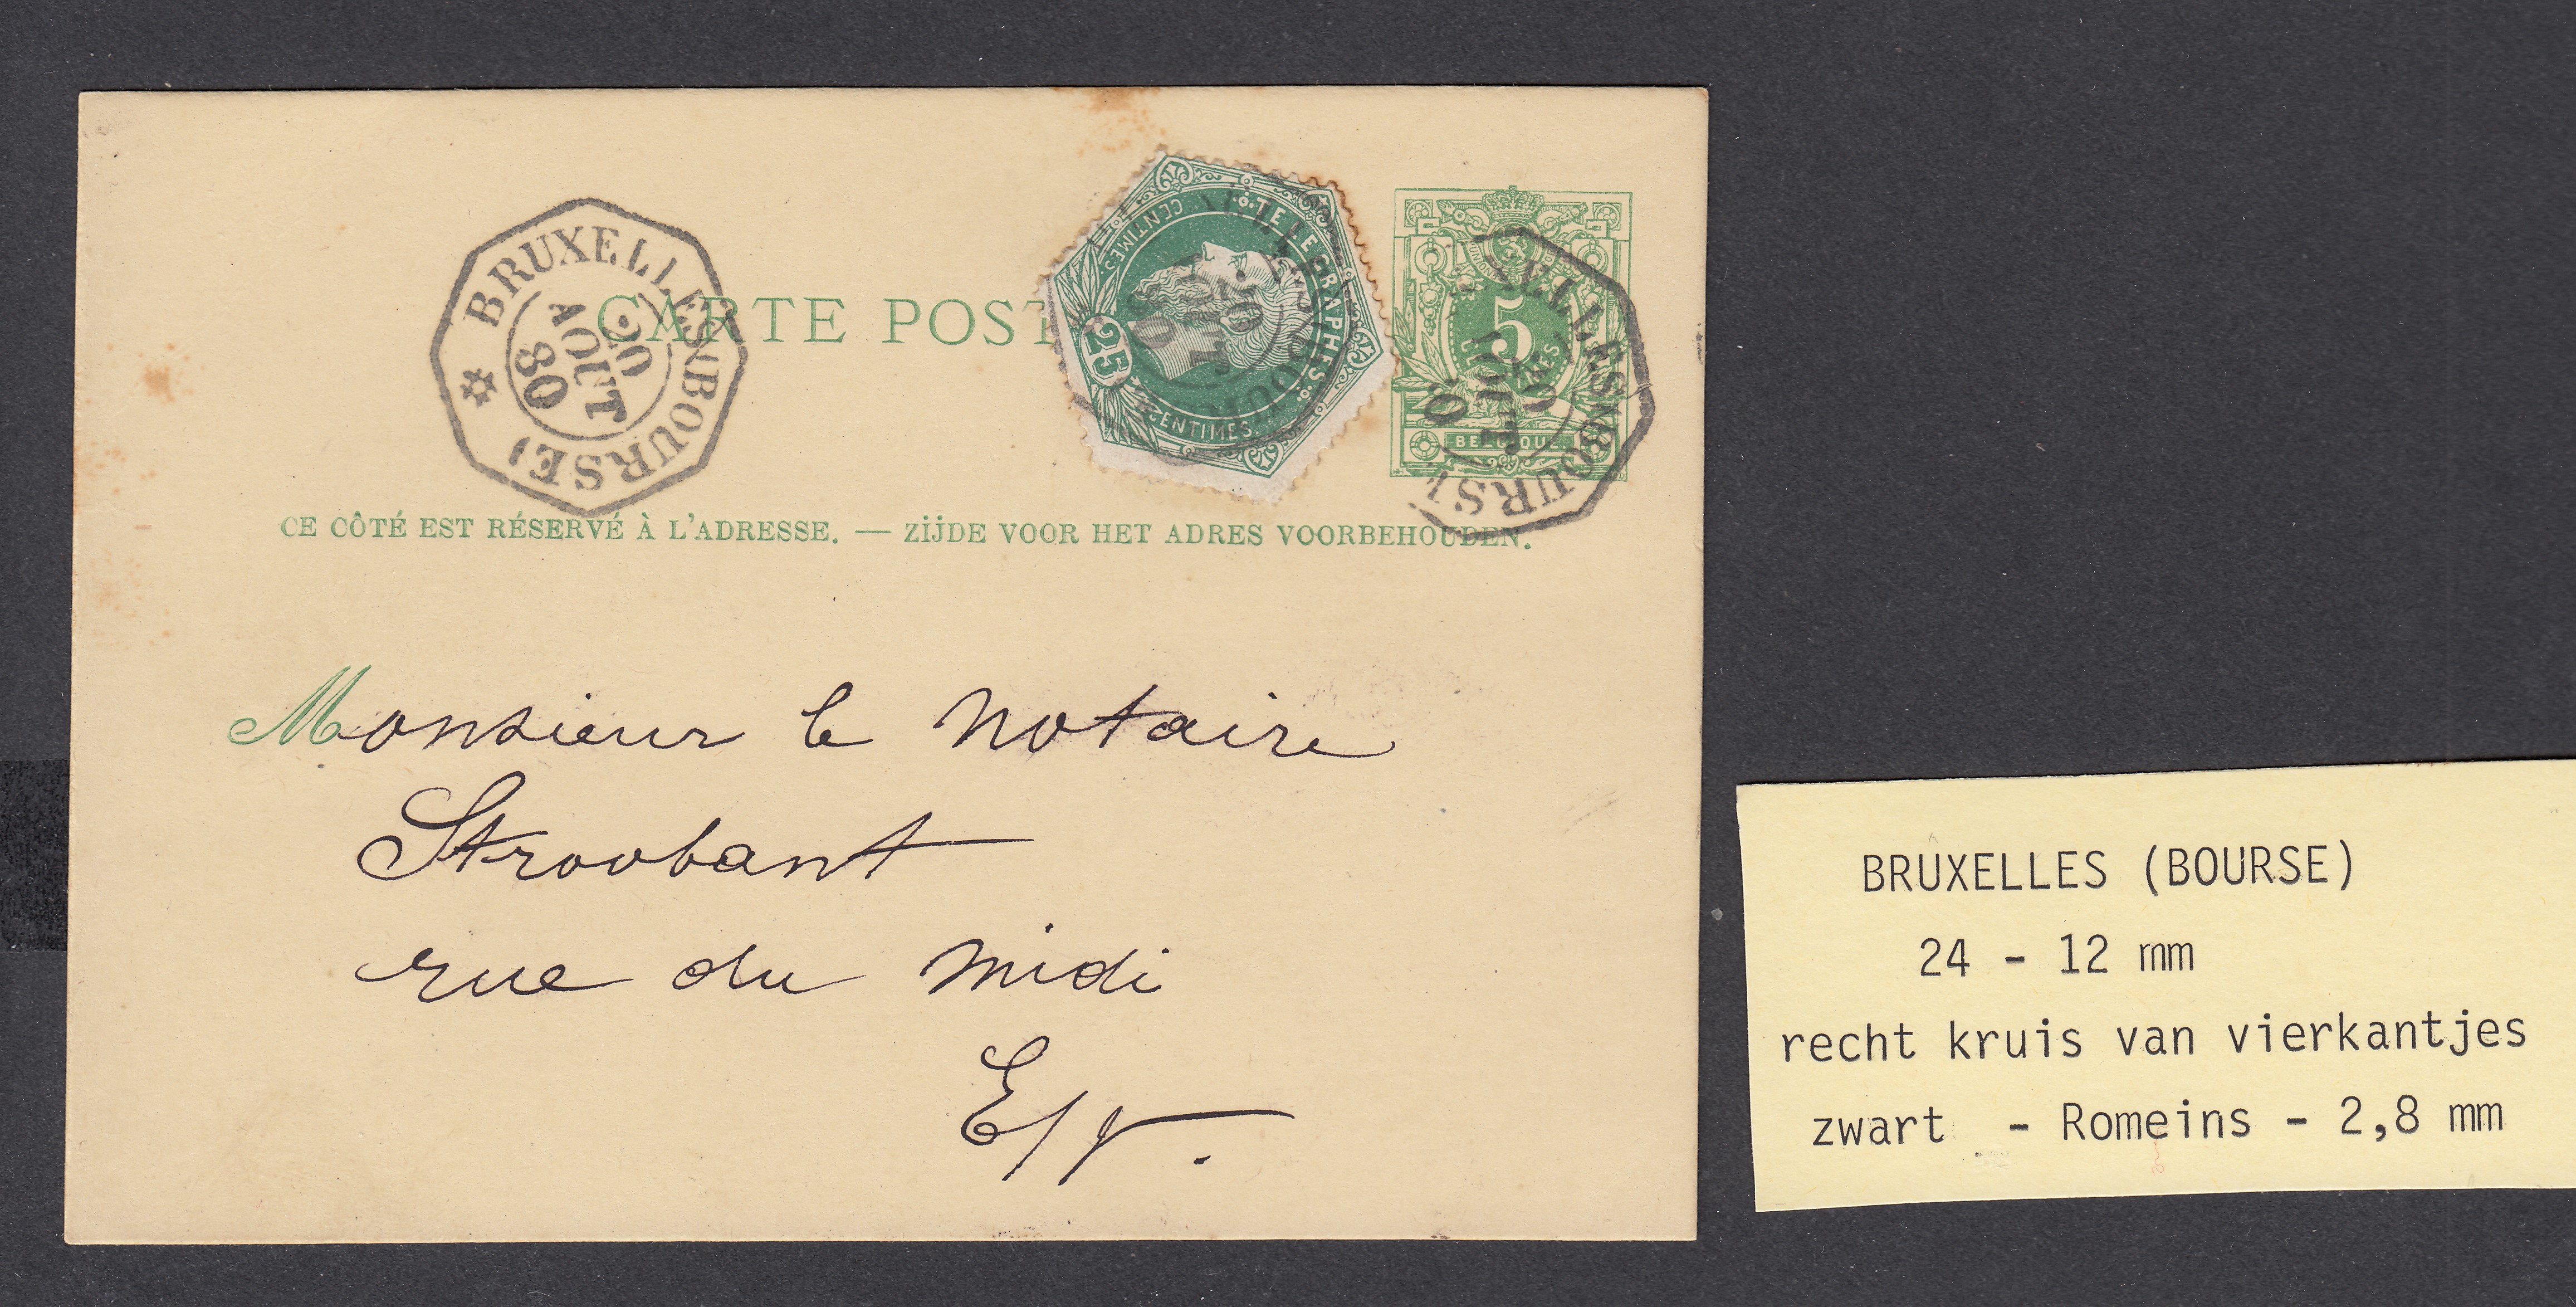 BRUXELLES (BOURSE)
20
AOUT
80
CARTE POST
TELEGRAPHES
CENTIMES
25
CENTIMES
20
5
CENTIMES
BELGIQUE
BRUXELLES (BOURSE)
20
AOUT
80
CE CÔTÉ EST RÉSERVÉ À L'ADRESSE. — ZIJDE VOOR HET ADRES VOORBEHOUDEN.
Monsieur le notaire
Stroobant
rue du midi
E/V.
BRUXELLES (BOURSE)
24 - 12 mm
recht kruis van vierkantjes
zwart - Romeins - 2,8 mm